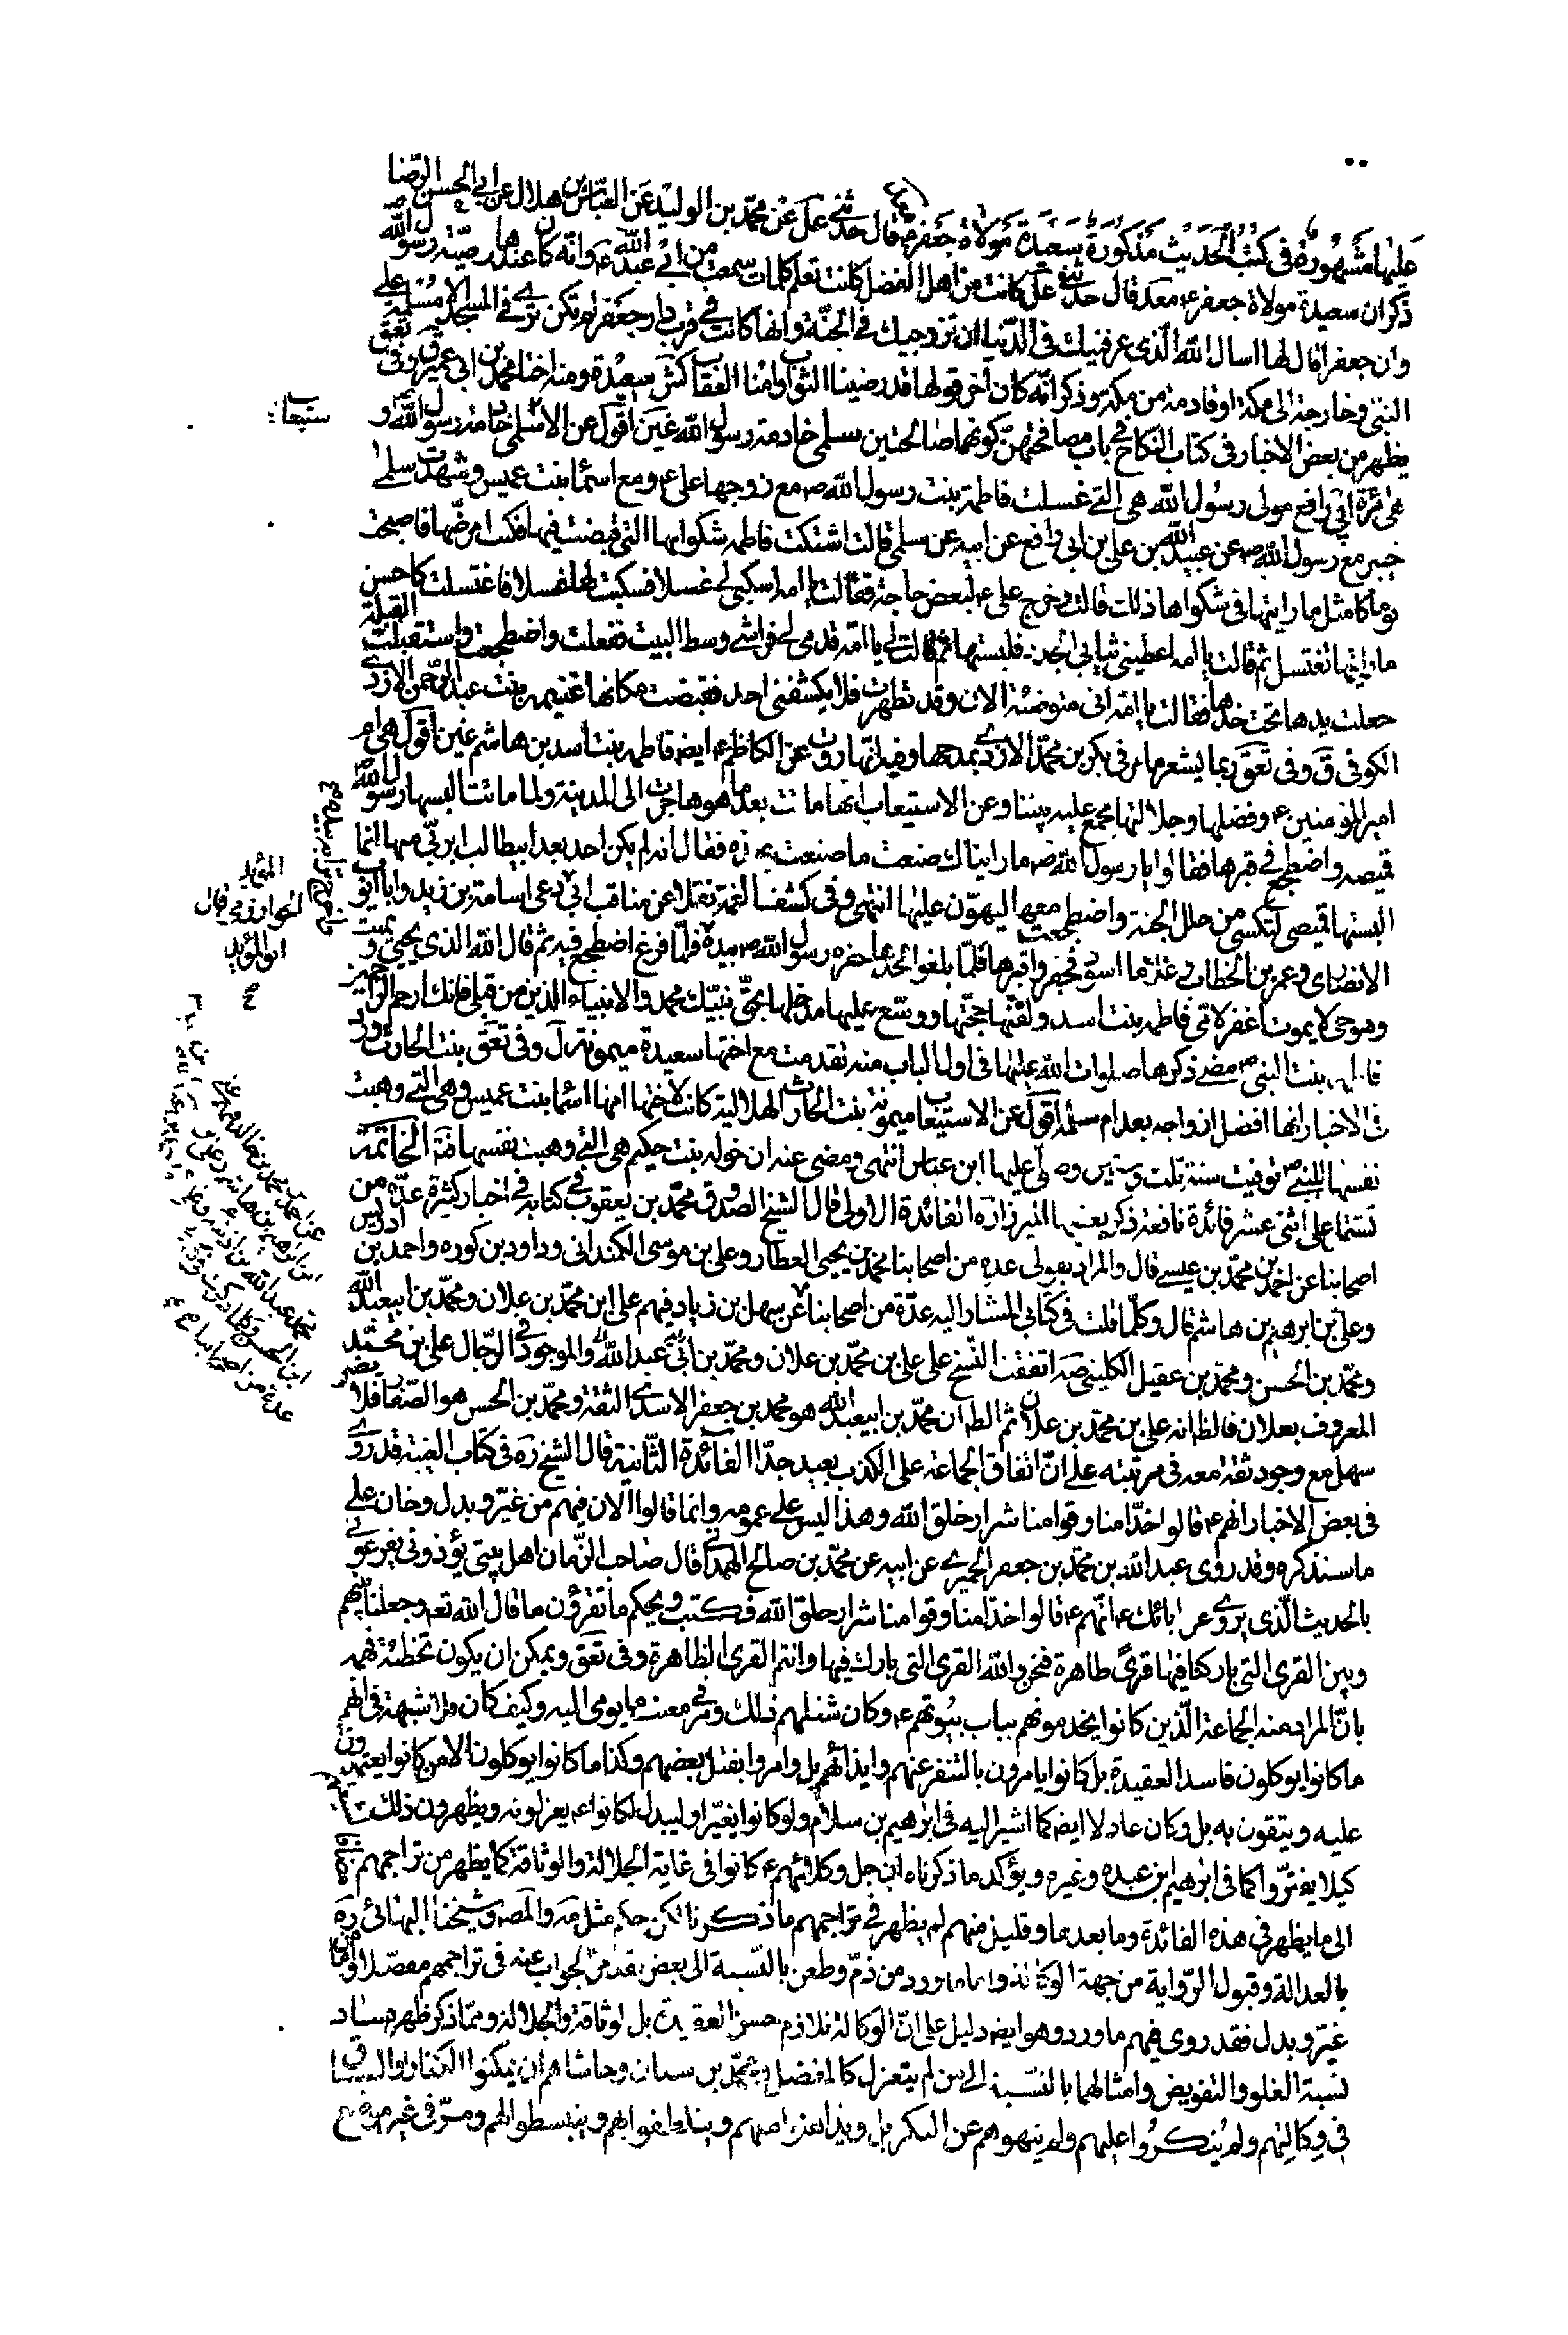 عليها مشهورة في كتب الحديث مذكورة سعيدة مولاة جعفر ع قال حدثني علي عن محمد بن الوليد عن العباس بن هلال عن ابي الحسن الرضا
ذكر ان سعيدة مولاة جعفر ع معد قال حدثني علي كانت من اهل الفضل كانت تعلم كلمات سمعت من ابي عبد الله ع وانه كان عندها وصية رسول الله ص
وان جعفرا قال لها اسال الله الذي عرفنيك في الدنيا ان تزوجيك في الجنة وانها كانت في قرب دار جعفر لم تكن ترى في المسجد الا مسلمة على
النبي وخارجة الى مكة او قادمة من مكة وذكر انه كان اخر قولها قد رضينا الثواب وامنا العقاب كش سعيدة ومنه اختا محمد بن ابي عمير وفي تعق
يظهر من بعض الاخبار في كتاب النكاح في باب مصافحتهن كونهما صالحتين سلمى خادمة رسول الله غين اقول عن الاسلمي خادمة رسول الله و
هي مرة ابي رافع مولى رسول الله هي التي غسلت فاطمة بنت رسول الله ص مع زوجها علي ع ومع اسما بنت عميس وشهدت سلمى
خيبر مع رسول الله ص عن عبيد الله بن علي بن ابي رافع عن ابيه عن سلمى قالت اشتكت فاطمه شكواها التي قبضت فيها فكنت امرضها فاصبحت
يوما كامثل ما رايتها في شكواها ذلك قالت وخرج علي ع لبعض حاجته فقالت يا امه اسكبي لي غسلا فسكبت لها غسلا فاغتسلت كاحسن
ما رايتها تغتسل ثم قالت يا امه اعطيني ثيابي الجدد فلبستها ثم قالت لي يا امه قدمي لي فراشي وسط البيت ففعلت واضطجعت واستقبلت القبلة
جعلت يدها تحت خدها فقالت يا امه اني مقبوضة الان وقد تطهرت فلا يكشفني احد فقبضت مكانها غنيمه بنت عبد الرحمن الازدي
الكوفي ق وفي تعق ربما يشعر ما مر في بكر بن محمد الازدي بمدحها وفيه انها روت عن الكاظم ع ايضه فاطمه بنت اسد بن هاشم غين اقول هي ام
امير المؤمنين ع وفضلها وجلالتها مجمع عليه بيننا وعن الاستيعاب انها ماتت بعد ما هاجرت الى المدينة ولما ماتت البسها رسول الله ص
قميصه واضطجع في قبرها فقالوا يا رسول الله ص ما رايناك صنعت ما صنعت بهذه فقال انه لم يكن احد بعد ابيطالب ابر بي منها انما
البستها قميصي لتكسى من حلل الجنة واضطجعت معها ليهون عليها انتهى وفي كشف الغمة نقلا عن مناقب ابي دعى اسامة بن زيد وابا ايوب
الانصاري وعمر بن الخطاب وغلاما اسود فحفروا قبرها فلما بلغوا لحدها حفره رسول الله ص بيده فلما فرغ اضطجع فيه ثم قال الله الذي يحيي و يميت
وهو حي لا يموت اغفر لامي فاطمه بنت اسد ولقنها حجتها ووسع عليها مدخلها بحق نبيك محمد والانبياء الذين من قبلي فانك ارحم الراحمين
فاطمه بنت النبي ص مضى ذكرها صلوات الله عليها في اول الباب منه تقدمت مع اختها سعيدة ميمونة ل وفي تعق بنت الحارث ورد
في الاخبار انها افضل ازواجه بعد ام سلمه اقول عن الاستيعاب ميمونة بنت الحارث الهلالية كانت لاختها امها اسما بنت عميس وهي التي وهبت
نفسها للنبي ص توفيت سنة ثلث وستين وصلى عليها ابن عباس انتهى ومضى عنه ان خوله بنت حكيم هي التي وهبت نفسها فته الخاتمة
تشتمل على اثني عشر فائدة نافعة ذكر بعضها الميرزا ره الفائدة الاولى قال الشيخ الصدوق محمد بن يعقوب في كتابه في اخبار كثيرة عدة من
اصحابنا عن احمد بن محمد بن عيسى قال والمراد بقولي عدة من اصحابنا محمد بن يحيى العطار وعلي بن موسى الكمنداني وداود بن كوره واحمد بن ادريس
وعلي بن ابرهيم بن هاشم قال وكلما قلت في كتابي المشار اليه عدة من اصحابنا عن سهل بن زياد فهم علي ابن محمد بن علان ومحمد بن ابيعبد الله
ومحمد بن الحسن ومحمد بن عقيل الكليني صه اتفقت النسخ على علي بن محمد بن علان ومحمد بن ابي عبد الله والموجود في الرجال علي بن محمد
المعروف بعلان فالظ انه علي بن محمد بن علان ثم الظ ان محمد بن ابيعبد الله هو محمد بن جعفر الاسدي الثقة ومحمد بن الحسن هو الصفار فلا يضر
سهل مع وجود ثقة معه في مرتبته على ان اتفاق الجماعة على الكذب بعيد جدا الفائدة الثانية قال الشيخ ره في كتاب الغيبة قد روي
في بعض الاخبار انهم ع قالوا خدامنا وقوامنا شرار خلق الله وهذا ليس على عمومه وانما قالوا لان فيهم من غير وبدل وخان على
ما سنذكره وقد روى عبد الله بن محمد بن جعفر الحميري عن ابيه عن محمد بن صالح الهمداني قال صاحب الزمان اهل بيتي يؤذوني يقرعوني
بالحديث الذي يروى عن ابائك ع انهم ع قالوا خدامنا وقوامنا شرار خلق الله فكتب ويحكم ما تقرؤن ما قال الله تعه وجعلنا بينهم
وبين القرى التي باركنا فيها قرى ظاهرة فنحن والله القرى التي بارك فيها وانتم القرى الظاهرة وفي تعق ويمكن ان يكون تخطئة فهمه
بان المراد منه الجماعة الذين كانوا يخدمونهم بباب بيوتهم ع وكان شغلهم ذلك ومر في معتب ما يومي اليه وكيف كان فلا شبهة في انهم
ما كانوا يوكلون فاسد العقيدة بل كانوا يامرون بالتنفر عنهم وايذائهم بل وامروا بقتل بعضهم وكذا ما كانوا يوكلون الا من كانوا يعتمدون
عليه ويثقون به بل وكان عادلا ايضه كما اشير اليه في ابرهيم بن سلام ولو كانوا يغير او ليبدل لكانوا ع يعزلونه ويظهرون ذلك
كيلا يغتروا كما في ابرهيم بن عبده وغيره ويؤكد ما ذكرناه ان جل وكلائهم ع كانوا في غاية الجلالة والوثاقة كما يظهر من تراجمهم
الى ما يظهر في هذه الفائدة وما بعدها وقليل منهم لم يظهر في تراجمهم ما ذكرنا لكن حكم مثل مه والمصه وشيخنا البهائي ره
بالعدالة وقبول الرواية من جهة الوكالة واما ما ورد من ذم وطعن بالنسبة الى بعض فقد مر الجواب عنه في تراجمهم مفصلا واما من
غير وبدل فقد روي فيهم ما ورد وهو ايضه دليل على ان الوكالة تلازم حسن العقيدة بل لوثاقة والجلالة ومما ذكر ظهر فساد
نسبة الغلو والتفويض وامثالهما بالنسبة الى من لم ينعزل كالمفضل ومحمد بن سنان وحاشاهم ان يمكنوا الكفار والفساق
في وكالتهم ولم ينكروا عليهم ولم ينهوهم عن المنكر بل